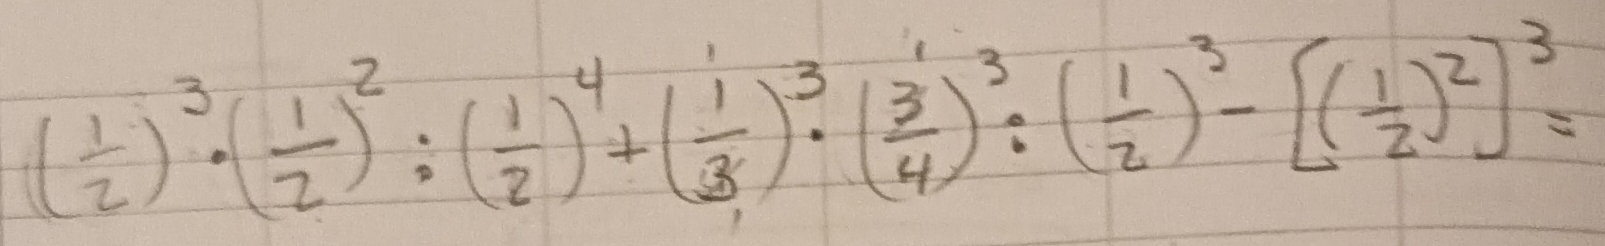 (1/2)³ · (1/2)² : (1/2)⁴ + (1/3)³ · (3/4)³ : (1/2)³ - [(1/2)²]³ =